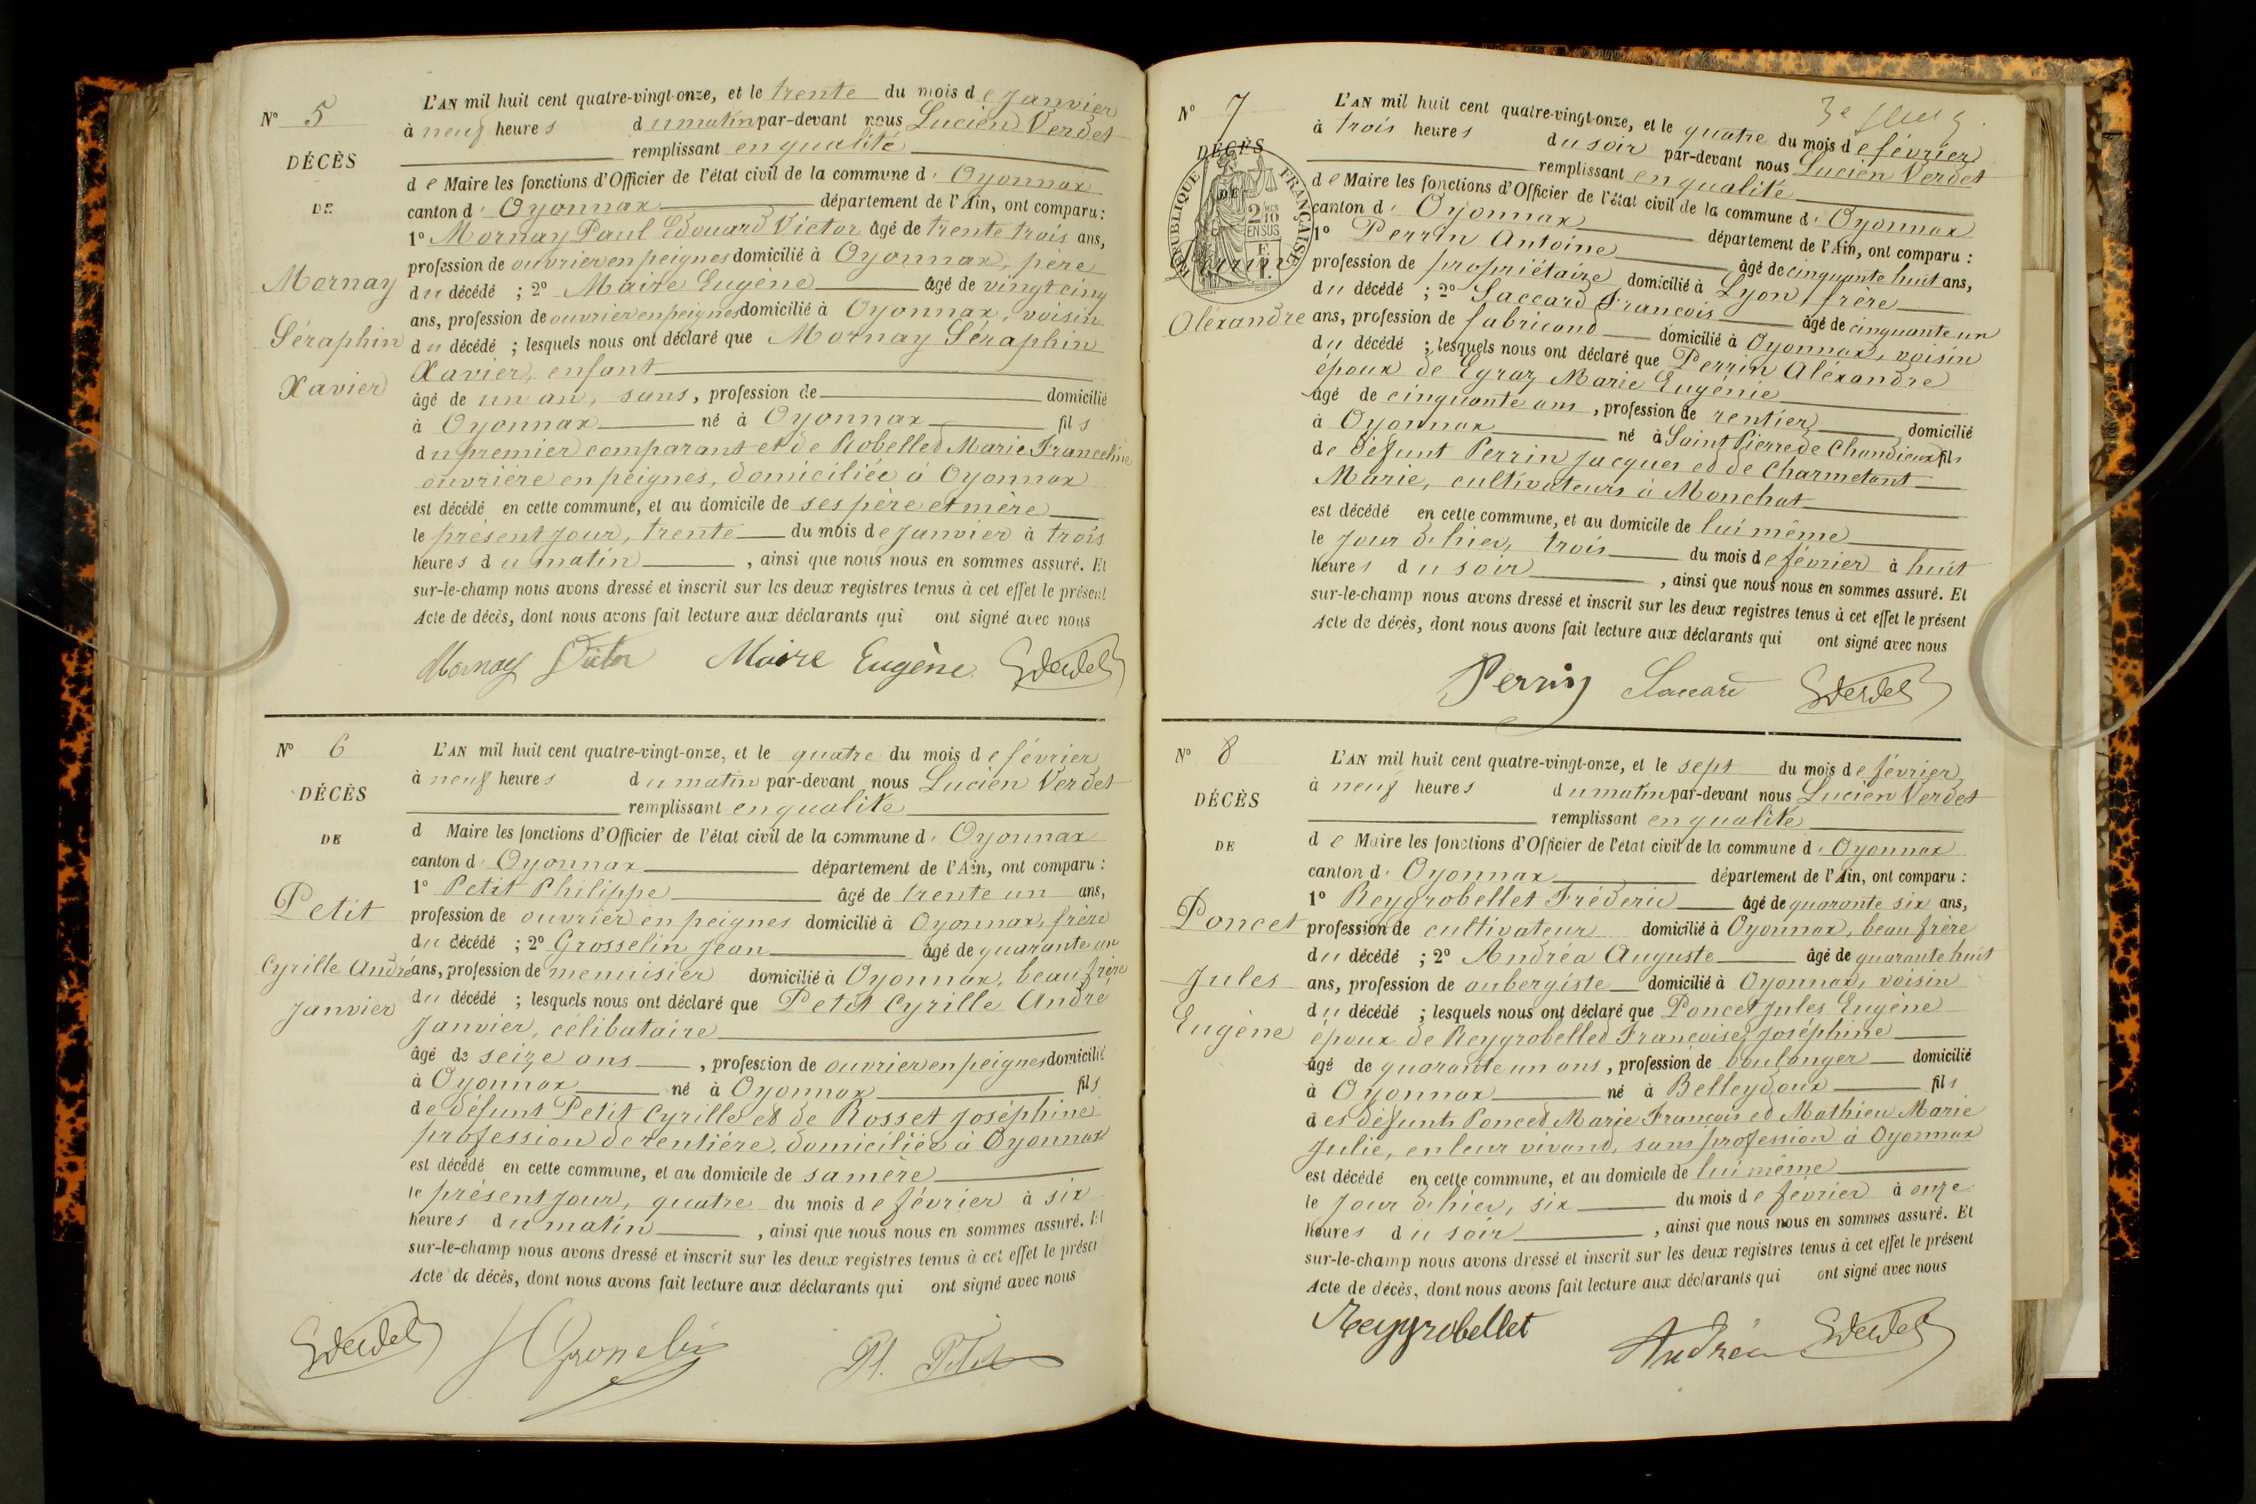 N° 5
DÉCÈS
DE
Mornay
Séraphin
Xavier
L'AN mil huit cent quatre-vingt-onze, et le trente du mois de janvier
à neuf heures du matin par-devant nous Lucien Verdet
remplissant en qualité
de Maire les fonctions d'Officier de l'état civil de la commune d'Oyonnax
canton d'Oyonnax département de l'Ain, ont comparu :
1° Mornay Paul Edouard Victor âgé de trente trois ans,
profession de ouvrier en peignes domicilié à Oyonnax, père
du décédé ; 2° Maire Eugène âgé de vingt cinq
ans, profession de ouvrier en peignes domicilié à Oyonnax, voisin
du décédé ; lesquels nous ont déclaré que Mornay Séraphin
Xavier, enfant
âgé de un an, sans, profession de domicilié
à Oyonnax né à Oyonnax fils
du premier comparant et de Robellet Marie Franceline
ouvrière en peignes, domiciliée à Oyonnax
est décédé en cette commune, et au domicile de ses père et mère
le présent jour, trente du mois de janvier à trois
heures du matin, ainsi que nous nous en sommes assuré. Et
sur-le-champ nous avons dressé et inscrit sur les deux registres tenus à cet effet le présent
Acte de décès, dont nous avons fait lecture aux déclarants qui ont signé avec nous
Mornay Victor Maire Eugène Verdet
N° 6
DÉCÈS
DE
Petit
Cyrille André
Janvier
L'AN mil huit cent quatre-vingt-onze, et le quatre du mois de février
à neuf heures du matin par-devant nous Lucien Verdet
remplissant en qualité
d Maire les fonctions d'Officier de l'état civil de la commune d'Oyonnax
canton d'Oyonnax département de l'Ain, ont comparu :
1° Petit Philippe âgé de trente un ans,
profession de ouvrier en peignes domicilié à Oyonnax, frère
du décédé ; 2° Grosselin Jean âgé de quarante un
ans, profession de menuisier domicilié à Oyonnax, beau frère
du décédé ; lesquels nous ont déclaré que Petit Cyrille André
Janvier, célibataire
âgé de seize ans, profession de ouvrier en peignes domicilié
à Oyonnax né à Oyonnax fils
de défunt Petit Cyrille et de Rosset Joséphine
profession de rentière, domiciliée à Oyonnax
est décédé en cette commune, et au domicile de sa mère
le présent jour, quatre du mois de février à six
heures du matin, ainsi que nous nous en sommes assuré. Et
sur-le-champ nous avons dressé et inscrit sur les deux registres tenus à cet effet le présent
Acte de décès, dont nous avons fait lecture aux déclarants qui ont signé avec nous
Verdet Ph. Petit
N° 7
DÉCÈS
DE
RÉPUBLIQUE FRANÇAISE
2/10
EN SUS
Perrin
Alexandre
L'AN mil huit cent quatre-vingt-onze, et le quatre du mois de février
à trois heures du soir par-devant nous Lucien Verdet
remplissant en qualité
de Maire les fonctions d'Officier de l'état civil de la commune d'Oyonnax
canton d'Oyonnax département de l'Ain, ont comparu :
1° Perrin Antoine âgé de cinquante huit ans,
profession de propriétaire domicilié à Lyon, frère
du décédé ; 2° Saccard François âgé de cinquante un
ans, profession de fabricant domicilié à Oyonnax, voisin
du décédé ; lesquels nous ont déclaré que Perrin Alexandre
époux de Egraz Marie Eugénie
âgé de cinquante ans, profession de rentier domicilié
à Oyonnax né à Saint Pierre de Chandieux fils
de défunt Perrin Jacques et de Charmetant
Marie, cultivateurs à Monchat
est décédé en cette commune, et au domicile de lui même
le jour d'hier, trois du mois de février à huit
heures du soir, ainsi que nous nous en sommes assuré. Et
sur-le-champ nous avons dressé et inscrit sur les deux registres tenus à cet effet le présent
Acte de décès, dont nous avons fait lecture aux déclarants qui ont signé avec nous
Perrin Saccard Verdet
N° 8
DÉCÈS
DE
Poncet
Jules
Eugène
L'AN mil huit cent quatre-vingt-onze, et le sept du mois de février
à neuf heures du matin par-devant nous Lucien Verdet
remplissant en qualité
de Maire les fonctions d'Officier de l'état civil de la commune d'Oyonnax
canton d'Oyonnax département de l'Ain, ont comparu :
1° Reygrobellet Fréderic âgé de quarante six ans,
profession de cultivateur domicilié à Oyonnax, beau frère
du décédé ; 2° Andréa Auguste âgé de quarante huit
ans, profession de aubergiste domicilié à Oyonnax, voisin
du décédé ; lesquels nous ont déclaré que Poncet Jules Eugène
époux de Reygrobellet Françoise Joséphine
âgé de quarante un ans, profession de boulanger domicilié
à Oyonnax né à Belleydoux fils
des défunts Poncet Marie François et Mathieu Marie
Julie, en leur vivant, sans profession à Oyonnax
est décédé en cette commune, et au domicile de lui même
le jour d'hier, six du mois de février à onze
heures du soir, ainsi que nous nous en sommes assuré. Et
sur-le-champ nous avons dressé et inscrit sur les deux registres tenus à cet effet le présent
Acte de décès, dont nous avons fait lecture aux déclarants qui ont signé avec nous
Reygrobellet Andréa Verdet